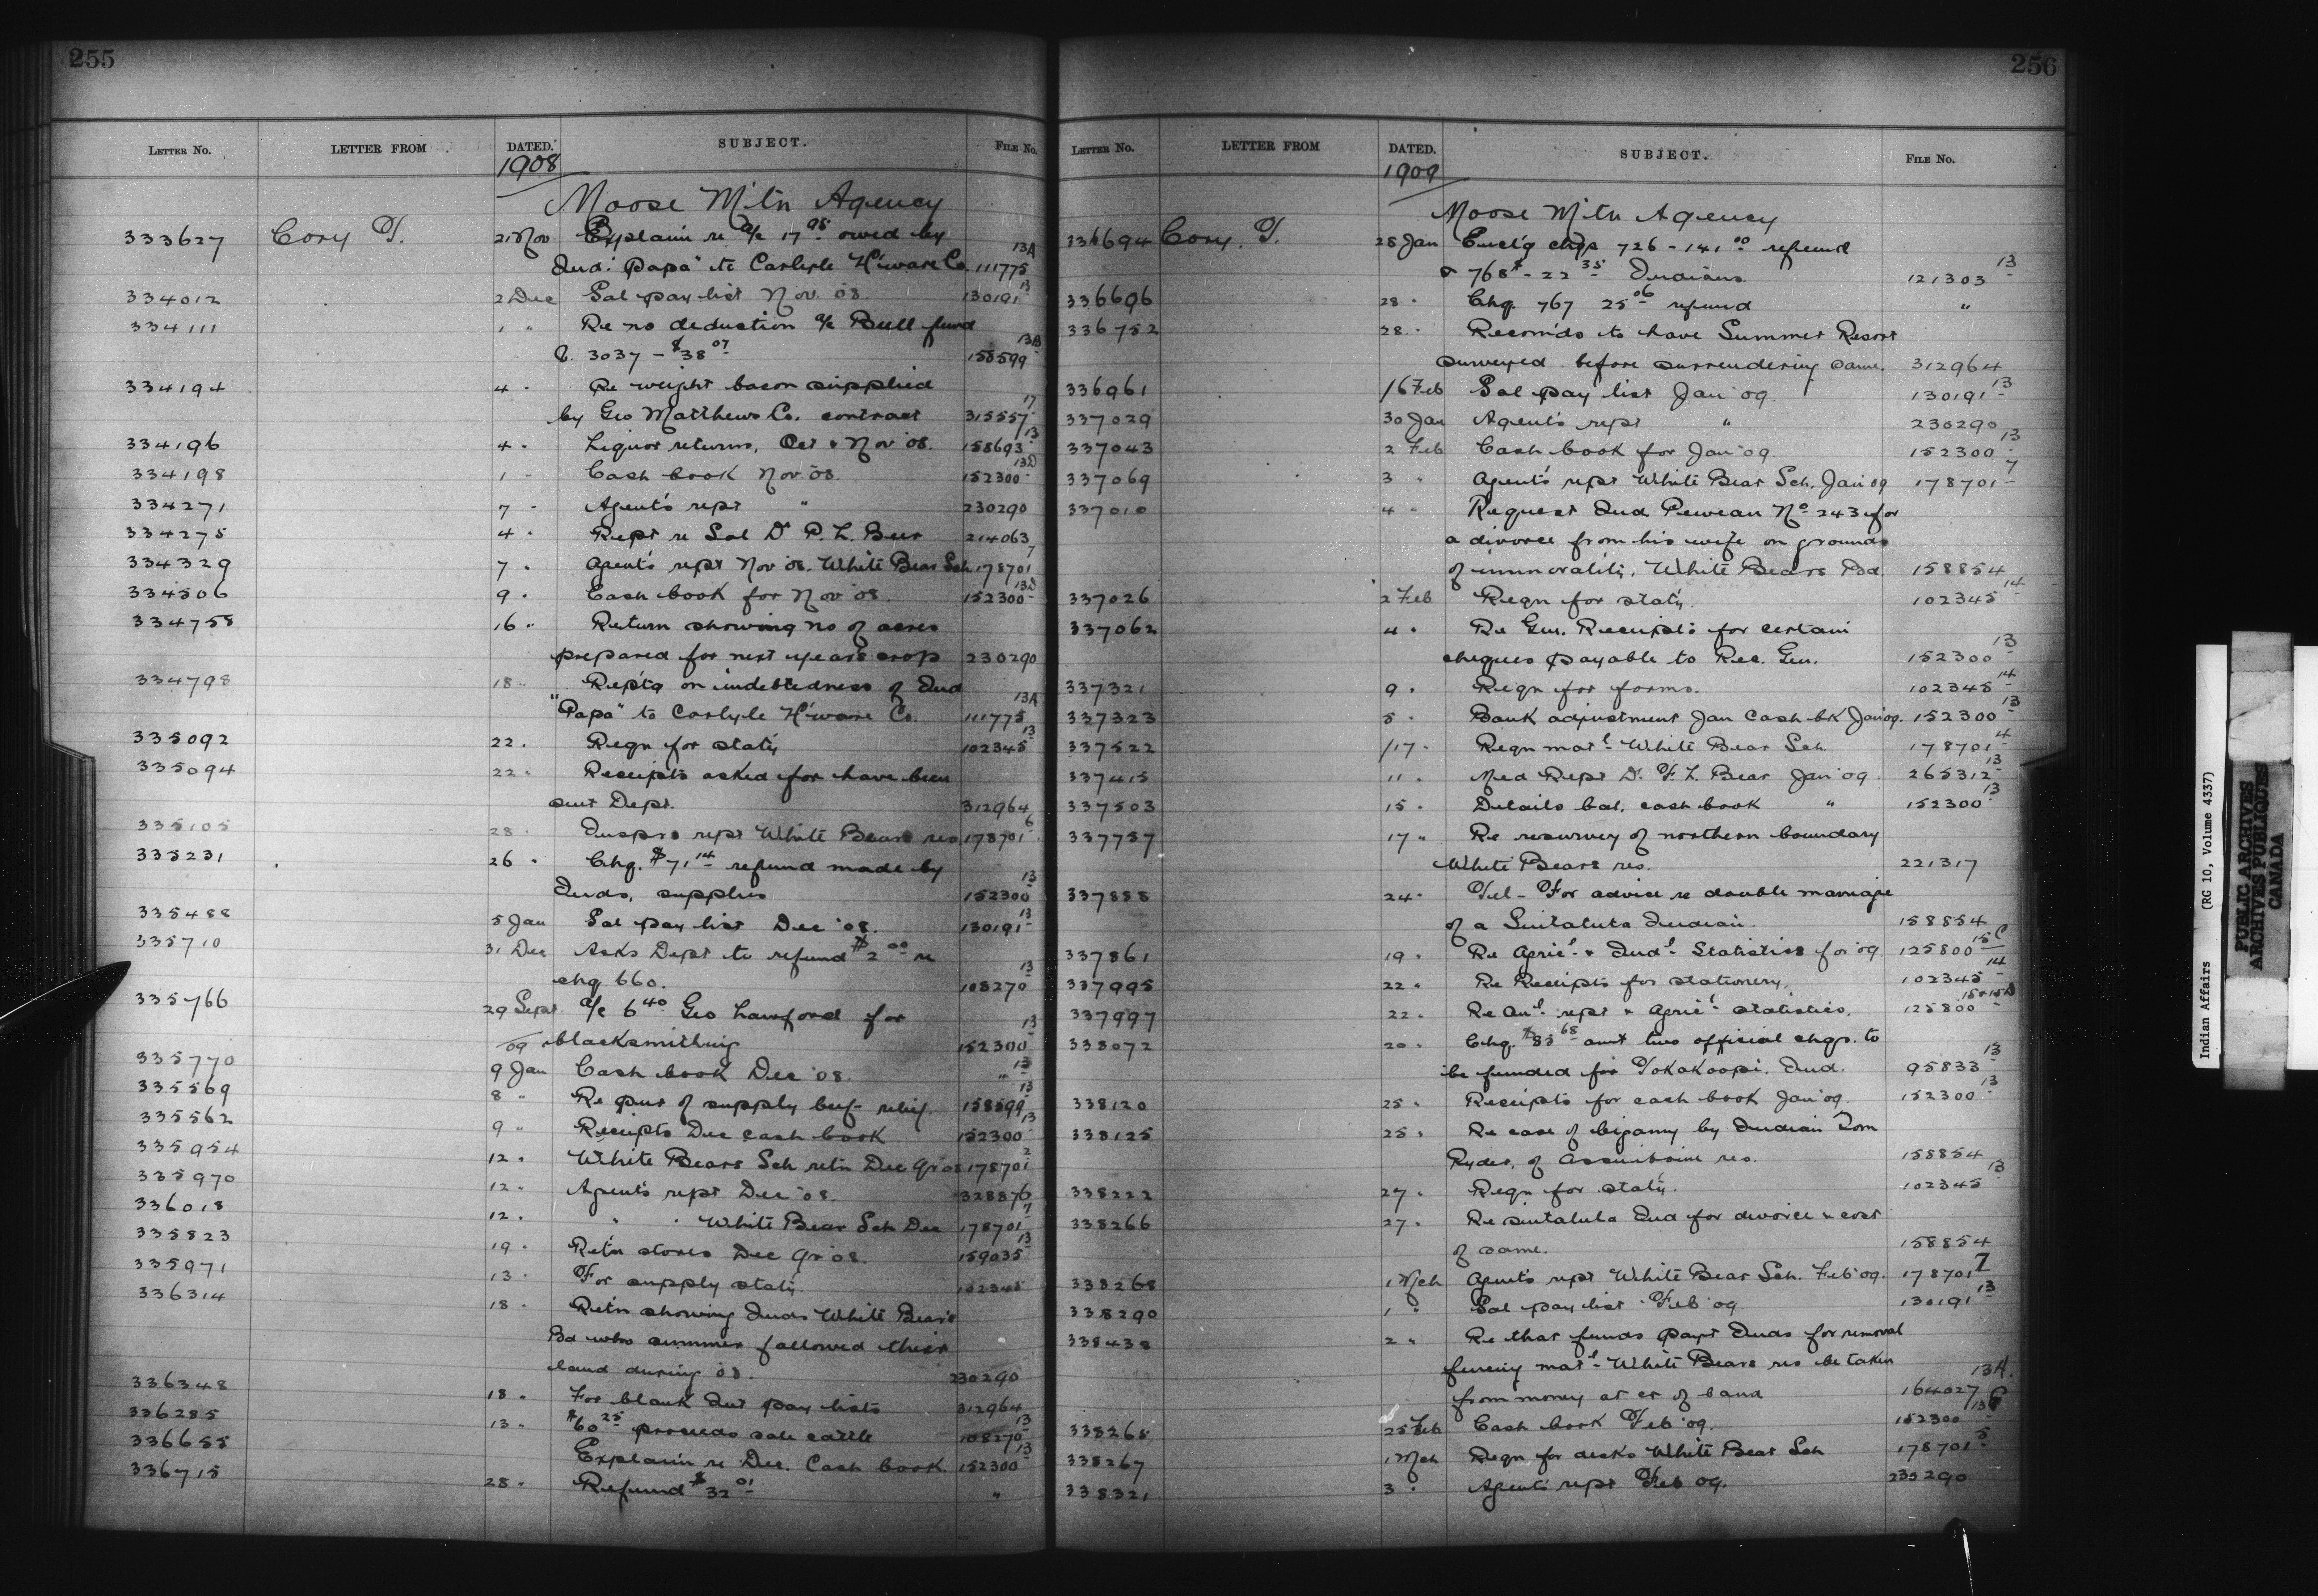 255
LETTER NO. LETTER FROM DATED. SUBJECT. FILE NO.
1908
Moose Mtn Agency
333627 Cory T. 21 Nov Explain re a/c 17.95 owed by
Ind. "Papa" to Carlyle H'ware Co. 111775 13A
334012 2 Dec Sal pay list Nov. 08. 130191 13
334111 1 " Re no deduction a/c Bull fund
C. 3037 - $38.07 158599 13B
334194 4 " Re weight bacon supplied
by Geo Matthews Co. contract 315557 17
334196 4 " Liquor returns, Oct & Nov '08. 158693 13
334198 1 " Cash book Nov. 08. 152300 13D
334271 7 " Agent's rept " 230290
334275 4 " Rept re Sal Dr P. L. Beer 214063
334329 7 " Agent's rept Nov '08. White Bear Sch 178701 7
334506 9 " Cash book for Nov '08. 152300 13D
334758 16 " Return showing no of acres
prepared for next years crop 230290
334798 18 " Rept'g on indebtedness of Ind
"Papa" to Carlyle H'ware Co. 111775 13A
335092 22 " Reqn for stat'y 102345 13
335094 22 " Receipts asked for have been
sent Dept. 312964
335105 28 " Insprs rept White Bears res 178701 6
335231 26 " Chq. $71.14 refund made by
Inds, supplies 152300 13
335488 5 Jan Sal pay list Dec '08. 130191 13
335710 31 Dec Asks Dept to refund $2.00 re
chq 660. 108270 13
335766 29 Sept a/c 6.40 Geo Lawford for
/09 blacksmithing 152300 13
335770 9 Jan Cash book Dec '08. " 13
335569 8 " Re pur of supply beef - relief. 158599 13
335562 9 " Receipts Dec cash book 152300 13
335954 12 " White Bears Sch retn Dec Qr 08 178701 2
335970 12 " Agents rept Dec '08. 328876
336018 12 " " " White Bear Sch Dec 178701 7
335823 19 " Retn stores Dec Qr '08. 159035 13
335971 13 " For supply stat'y. 102345
336314 18 " Retn showing Inds White Bear's
Bd who summer fallowed their
land during 08. 230290
336348 18 " For blank Int pay lists 312964
336285 13 " $60.25 proceeds sale cattle 108270 13
336655 Explain re Dec. Cash book. 152300 13
336715 28 " Refund $32.01 "
256
LETTER NO. LETTER FROM DATED. SUBJECT. FILE NO.
1909
Moose Mtn Agency
336694 Cory. T. 28 Jan Encl'g chqs 726 - 141.00 refund
& 768 - $22.35 Indians. 121303 13
336696 28 " Chq. 767 25.06 refund "
336752 28 " Recom'ds to have Summer Resort
surveyed before surrendering same. 312964
336961 1/6 Feb Sal pay list Jan '09. 130191 13
337029 30 Jan Agent's rept " 230290
337043 2 Feb Cash book for Jan '09. 152300 13
337069 3 " Agent's rept White Bear Sch. Jan '09 178701 7
337010 4 " Request Ind Pewean No. 243 for
a divorce from his wife on grounds
of immorality. White Bears Bd. 158854
337026 2 Feb Reqn for stat'y. 102345 14
337062 4 " Re Gen. Receipts for certain
cheques payable to Rec. Gen. 152300 13
337321 9 " Reqn for forms. 102345 14
337323 5 " Bank adjustment Jan Cash bk Jan '09. 152300 13
337522 /17 " Reqn mat'l White Bear Sch 178701 4
337415 11 " Med Rept Dr. F. L. Bear Jan '09. 265312 13
337503 15 " Details bal. cash book " 152300 13
337757 17 " Re resurvey of northern boundary
White Bears res. 221317
337858 24 " Tel - For advice re double marriage
of a Sintaluta Indian. 158854
337861 19 " Re Agric'l & Ind'l Statistics for '09. 125800 15C
337995 22 " Re Receipts for stationery. 102345 14
337997 22 " Re An'l rept & Agric'l statistics. 125800 15+15D
338072 20 " Chq. $83.68 amt two official chqs. to
be funded for Tokakoopi. Ind. 95833 13
338120 25 " Receipts for cash book Jan '09. 152300 13
338125 25 " Re case of bigamy by Indian Tom
Ryder, of Assiniboine res. 158854
338222 27 " Reqn for stat'y. 102345 13
338266 27 " Re Sintaluta Ind for divorce & cost
of same. 158854
338268 1 Mch Agents rept White Bear Sch. Feb '09. 178701 7
338290 1 " Sal pay list Feb '09. 130191 13
338438 2 " Re that funds payt Inds for removal
fencing mat'l White Bears res be taken
from money at cr of band 164027 13A.
338265 25 Feb Cash book Feb '09. 152300
338267 1 Mch Reqn for desks White Bear Sch 178701 5
338321 3 " Agents rept Feb 09. 230290
Indian Affairs (RG 10, Volume 4337)
PUBLIC ARCHIVES
ARCHIVES PUBLIQUES
CANADA